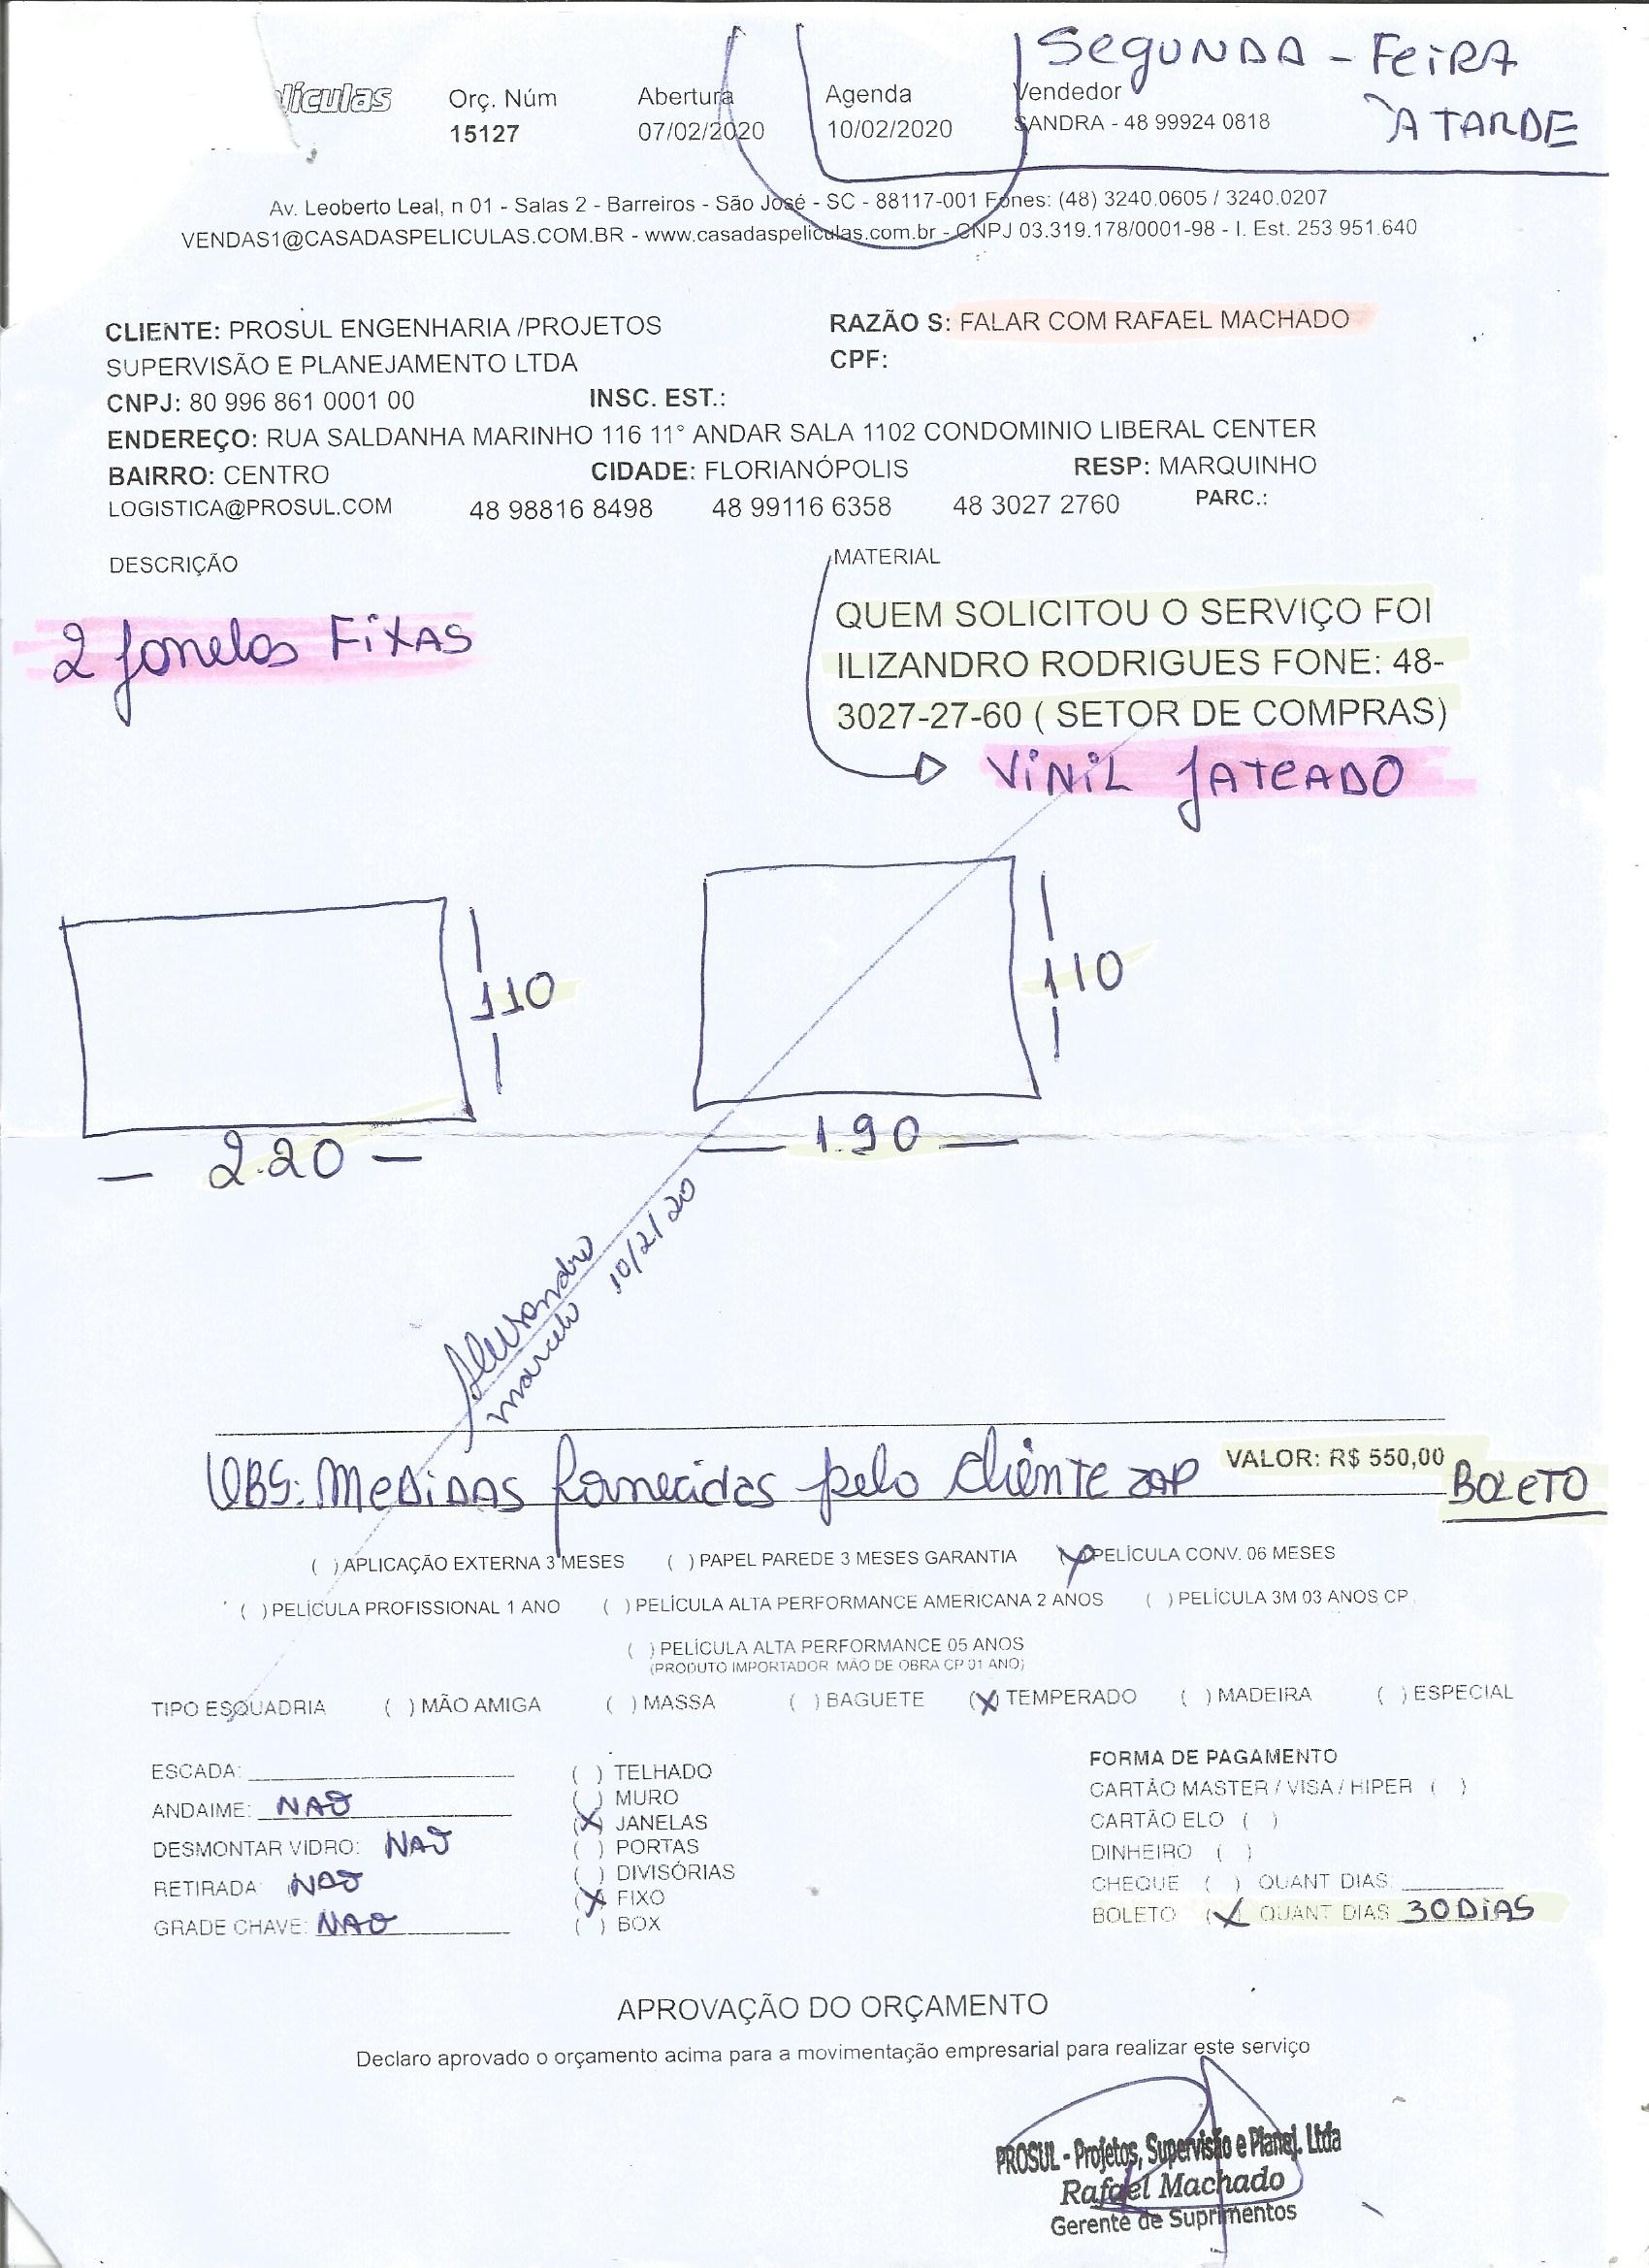 SEGUNDA - FEIRA
À TARDE
lículas
Orç. Núm Abertura Agenda Vendedor
15127 07/02/2020 10/02/2020 SANDRA - 48 99924 0818
Av. Leoberto Leal, n 01 - Salas 2 - Barreiros - São José - SC - 88117-001 Fones: (48) 3240.0605 / 3240.0207
VENDAS1@CASADASPELICULAS.COM.BR - www.casadaspeliculas.com.br - CNPJ 03.319.178/0001-98 - I. Est. 253 951.640
CLIENTE: PROSUL ENGENHARIA /PROJETOS RAZÃO S: FALAR COM RAFAEL MACHADO
SUPERVISÃO E PLANEJAMENTO LTDA CPF:
CNPJ: 80 996 861 0001 00 INSC. EST.:
ENDEREÇO: RUA SALDANHA MARINHO 116 11° ANDAR SALA 1102 CONDOMINIO LIBERAL CENTER
BAIRRO: CENTRO CIDADE: FLORIANÓPOLIS RESP: MARQUINHO
LOGISTICA@PROSUL.COM 48 98816 8498 48 99116 6358 48 3027 2760 PARC.:
DESCRIÇÃO MATERIAL
2 Janelas FiXAS
QUEM SOLICITOU O SERVIÇO FOI
ILIZANDRO RODRIGUES FONE: 48-
3027-27-60 ( SETOR DE COMPRAS)
ViNiL JATEADO
110 110
2.20 1.90
Alessandro
marcelo 10/2/20
OBS: MeDiDAS fornecidas pelo cliente ZAP VALOR: R$ 550,00
BOLETO
( ) APLICAÇÃO EXTERNA 3 MESES ( ) PAPEL PAREDE 3 MESES GARANTIA (X) PELÍCULA CONV. 06 MESES
( ) PELÍCULA PROFISSIONAL 1 ANO ( ) PELÍCULA ALTA PERFORMANCE AMERICANA 2 ANOS ( ) PELÍCULA 3M 03 ANOS CP
( ) PELÍCULA ALTA PERFORMANCE 05 ANOS
(PRODUTO IMPORTADOR MÃO DE OBRA CP 01 ANO)
TIPO ESQUADRIA ( ) MÃO AMIGA ( ) MASSA ( ) BAGUETE (X) TEMPERADO ( ) MADEIRA ( ) ESPECIAL
ESCADA:
ANDAIME: NAO
DESMONTAR VIDRO: NAO
RETIRADA: NAO
GRADE CHAVE: NAO
( ) TELHADO
( ) MURO
(X) JANELAS
( ) PORTAS
( ) DIVISÓRIAS
(X) FIXO
( ) BOX
FORMA DE PAGAMENTO
CARTÃO MASTER / VISA / HIPER ( )
CARTÃO ELO ( )
DINHEIRO ( )
CHEQUE ( ) QUANT DIAS:
BOLETO (X) QUANT DIAS 30 DiAS
APROVAÇÃO DO ORÇAMENTO
Declaro aprovado o orçamento acima para a movimentação empresarial para realizar este serviço
PROSUL - Projetos, Supervisão e Planej. Ltda
Rafael Machado
Gerente de Suprimentos